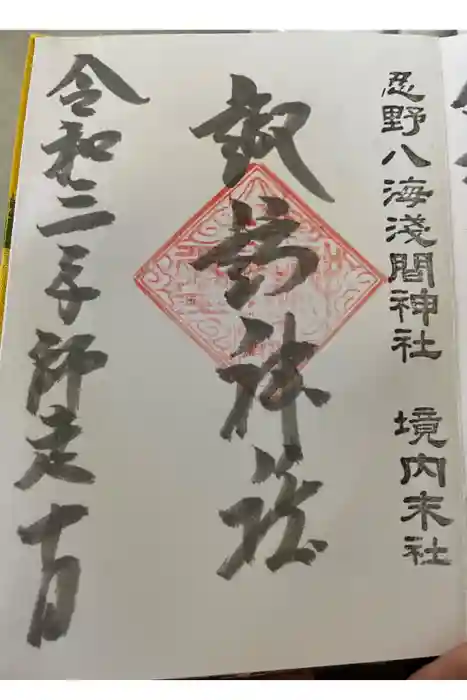 忍野八海淺間神社 境内末社
諏訪神社
令和三年師走吉日